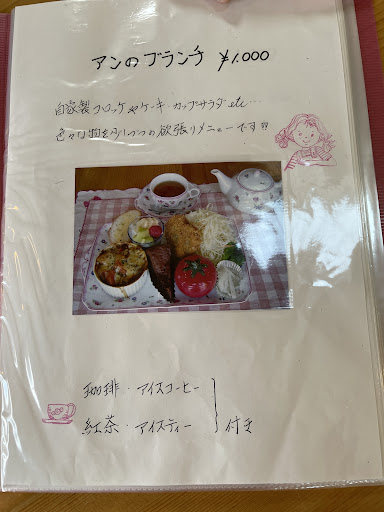 アンのブランチ ¥1.000
自家製コロッケやケーキ・カップサラダetc…
色々な物を少しづつの欲張りメニューです!!!
珈琲・アイスコーヒー
紅茶・アイスティー
付き